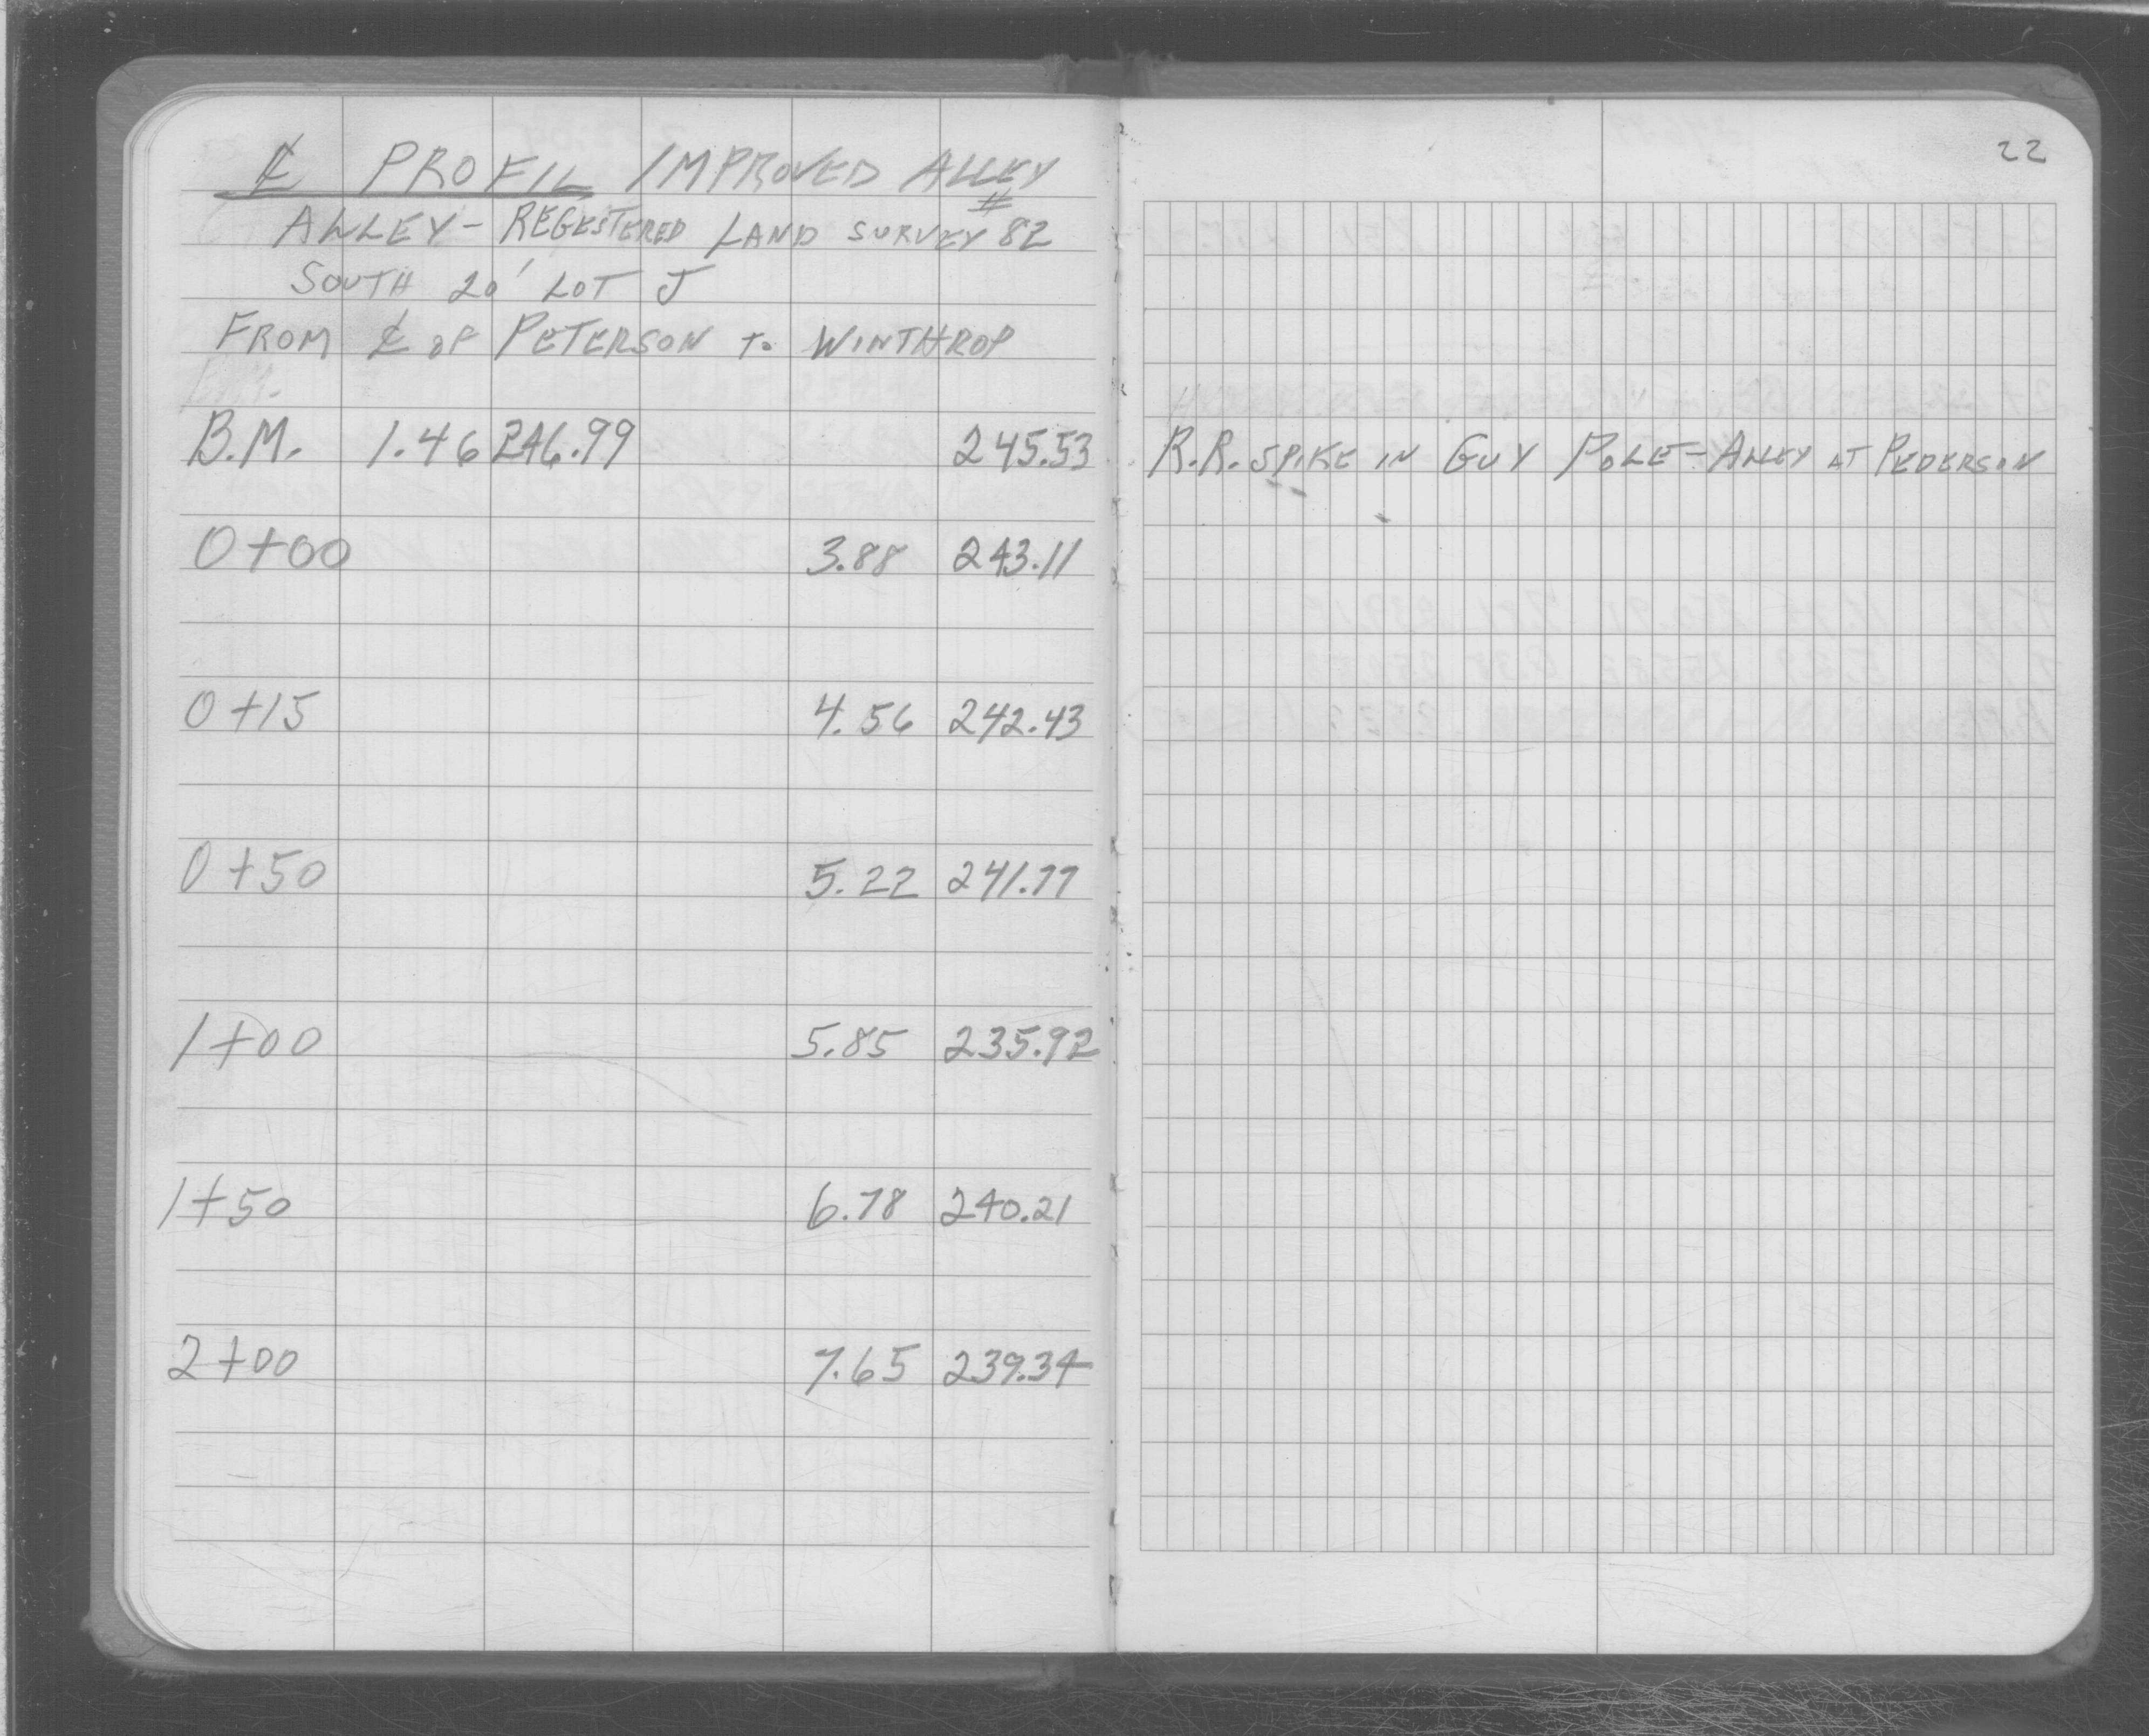 ℄ PROFIL IMPROVED ALLEY
ALLEY - REGESTERED LAND SURVEY #82
SOUTH 20' LOT J
FROM ℄ OF PETERSON TO WINTHROP
B.M. 1.46 246.99 245.53
0+00 3.88 243.11
0+15 4.56 242.43
0+50 5.22 241.77
1+00 5.85 235.92
1+50 6.78 240.21
2+00 7.65 239.34
22
R.R. SPIKE IN GUY POLE - ALLEY AT PEDERSON